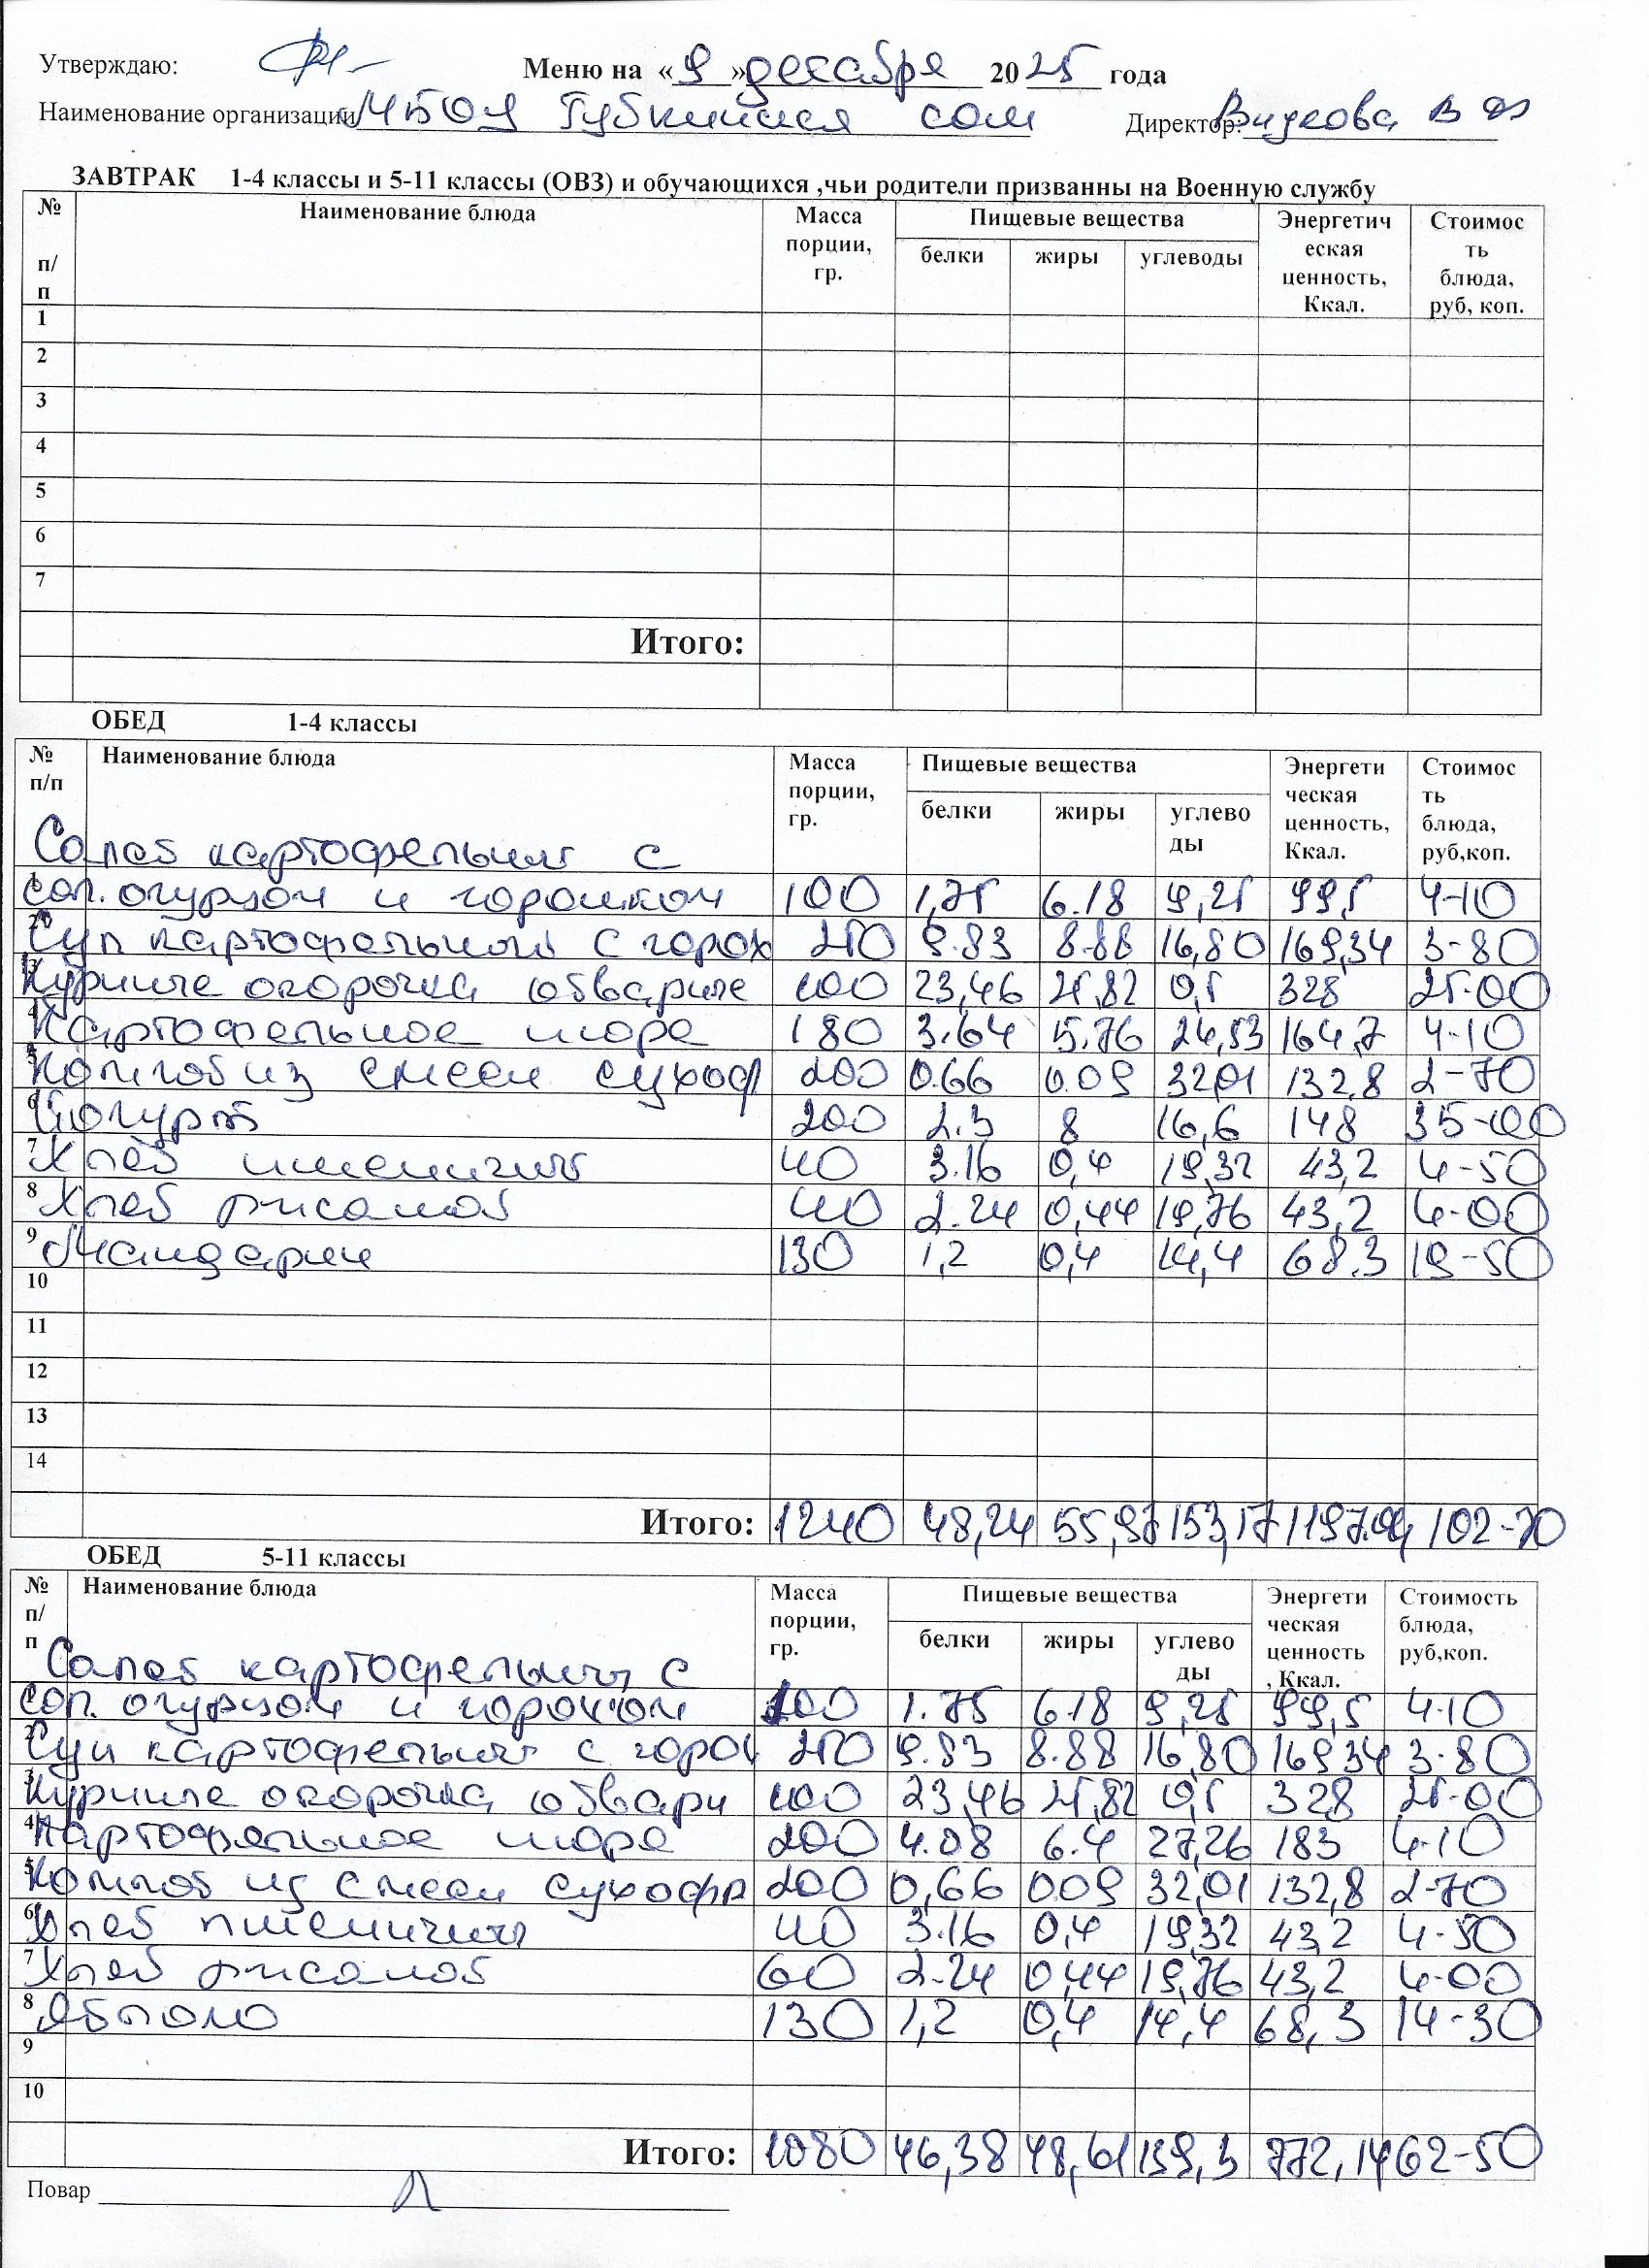 Утверждаю: Меню на «9» декабря 2025 года
Наименование организации МБОУ сош Директор:
ЗАВТРАК 1-4 классы и 5-11 классы (ОВЗ) и обучающихся ,чьи родители призванны на Военную службу
№ п/п Наименование блюда Масса порции, гр. Пищевые вещества Энергетическая ценность, Ккал. Стоимость блюда, руб, коп.
белки жиры углеводы
1
2
3
4
5
6
7
Итого:
ОБЕД 1-4 классы
№ п/п Наименование блюда Масса порции, гр. Пищевые вещества Энергетическая ценность, Ккал. Стоимость блюда, руб,коп.
белки жиры углеводы
Салат картофельный с
1 сол. огурцом и горошком 100 1,75 6.18 9,25 99,5 4-10
2 Суп картофельный с горох 250 9.83 8.88 16,80 169,34 3-80
3 Куриные окорочка отварные 100 23,46 25,82 0,5 328 25-00
4 Картофельное пюре 180 3.64 5.76 24,53 164,7 4-10
5 Компот из смеси сухоф 200 0.66 0.09 32,01 132,8 2-70
6 Йогурт 200 2.3 8 16,6 148 35-00
7 Хлеб пшеничный 40 3.16 0,4 19,32 43,2 4-50
8 Хлеб ржаной 40 2.24 0,44 19,76 43,2 4-00
9 Мандарин 130 1,2 0,4 14,4 68.3 19-50
10
11
12
13
14
Итого: 1240 48,24 55,97 153,17 1197.04 102-70
ОБЕД 5-11 классы
№ п/п Наименование блюда Масса порции, гр. Пищевые вещества Энергетическая ценность, Ккал. Стоимость блюда, руб,коп.
белки жиры углеводы
Салат картофельный с
1 сол. огурцом и горошком 100 1.75 6.18 9,25 99,5 4-10
2 Суп картофельный с горох 250 9.83 8.88 16,80 169,34 3-80
3 Куриные окорочка отварн 100 23,46 25,82 0,5 328 25-00
4 Картофельное пюре 200 4.08 6.4 27,26 183 4-10
5 Компот из смеси сухофр 200 0,66 0.09 32,01 132,8 2-70
6 Хлеб пшеничный 40 3.16 0,4 19,32 43,2 4-50
7 Хлеб ржаной 60 2.24 0,44 19,76 43,2 4-00
8 Яблоко 130 1,2 0,4 14,4 68,3 14-30
9
10
Итого: 1080 46,38 48,61 139,3 772,14 62-50
Повар